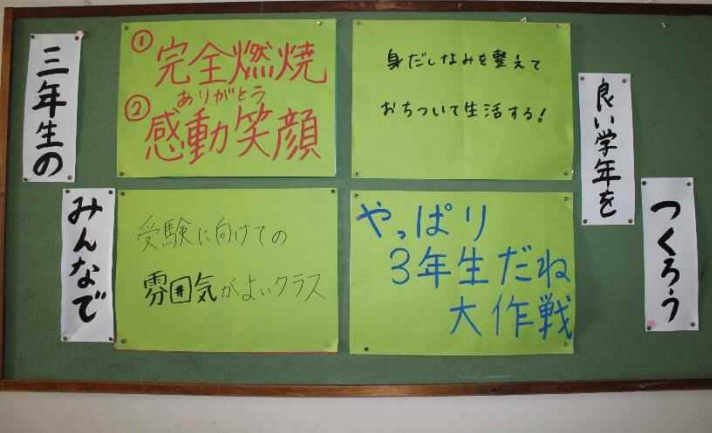 三年生の
みんなで
① 完全燃焼
ありがとう
② 感動笑顔
身だしなみを整えて
おちついて生活する!
受験に向けての
雰囲気がよいクラス
やっぱり
3年生だね
大作戦
良い学年を
つくろう